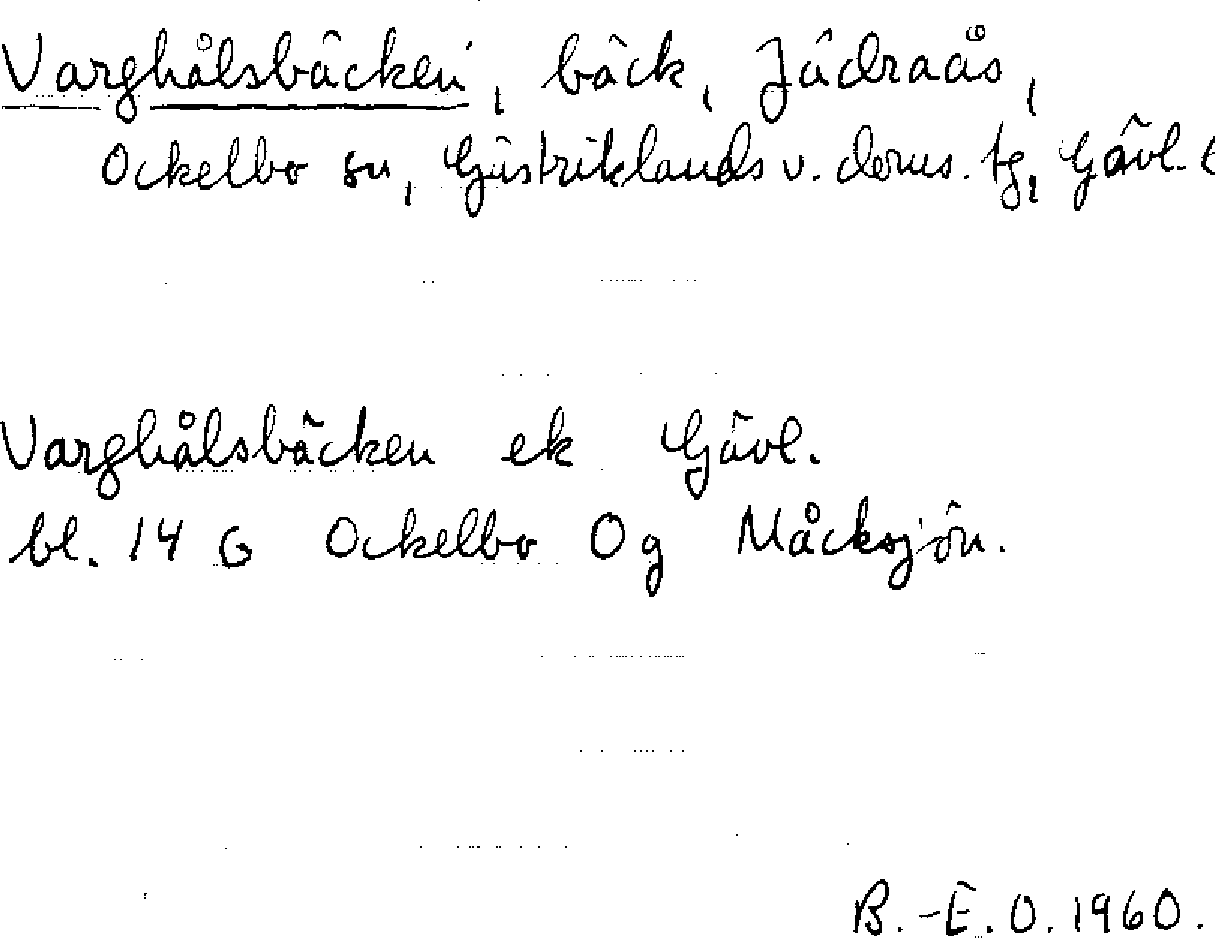 Varghålsbäcken, bäck, Jädraås,
Ockelbo sn, Gästriklands v. doms. tg, Gävl. l
Varghålsbäcken ek Gävl.
bl. 14 G Ockelbo 0g Måcksjön.
B.-E.O. 1960.